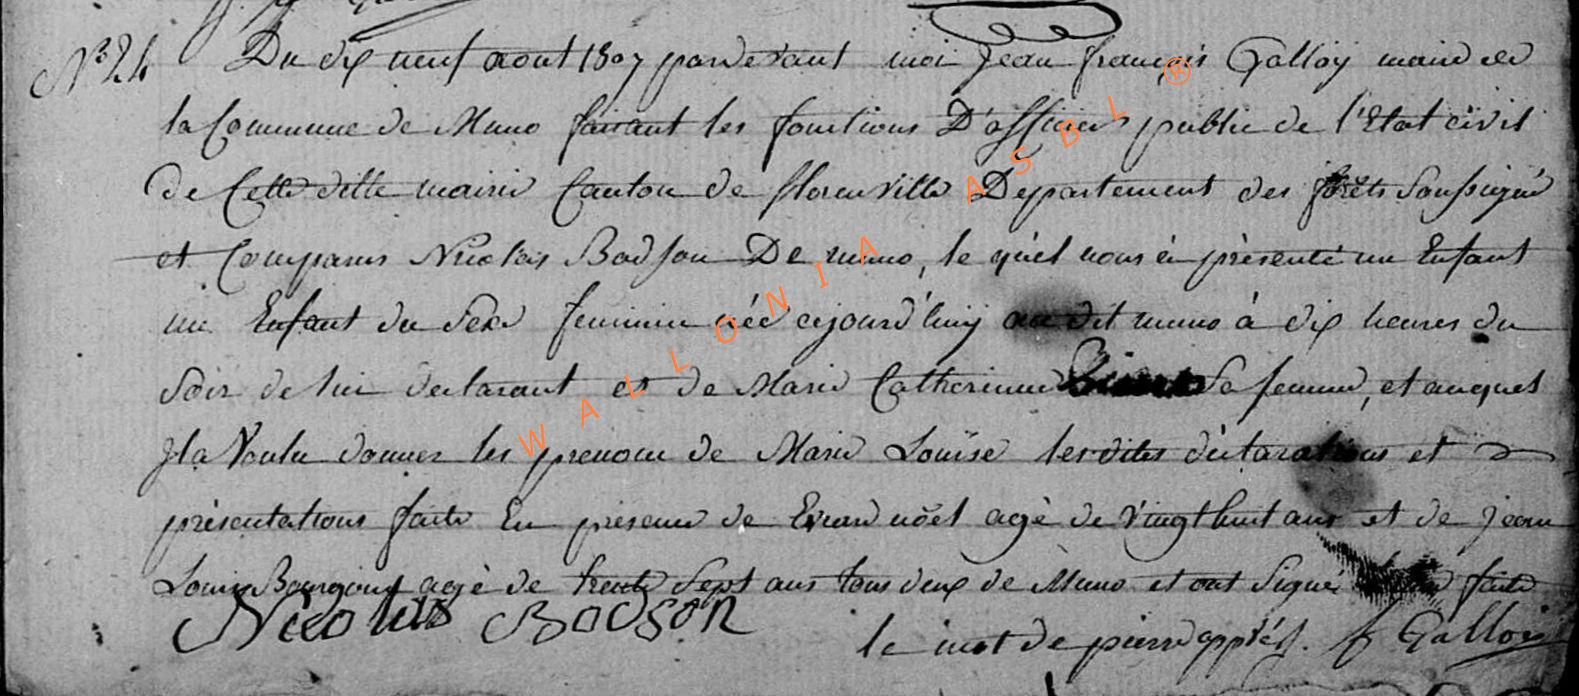 N° 24 Du dix neuf aout 1807 pardevant moi Jean françois Galloy maire de
la Commune de Muno faisant les fonctions D'officier public de l'Etat civil
de Cette ditte mairie Canton de florenville Departement des forêts Soussigné
et Comparus Nicolas Bodson De muno, le quel nous à présenté un Enfant
un Enfant du Sexe feminin née cejourd'huy au dit muno à dix heures du
Soir de lui declarant et de Marie Catherinne Sa femme, et auquel
Jl a Voulu donner les prenom de Marie Louïse lesdites déclarations et
présentations faite En présence de noël agé de Vingt huit ans et de jean
Louis agé de trente Sept ans tous deux de Muno et ont Signé faite
Nicolas BODSON
le mot de pierre J Galloy
WALLONIA ASBL ®